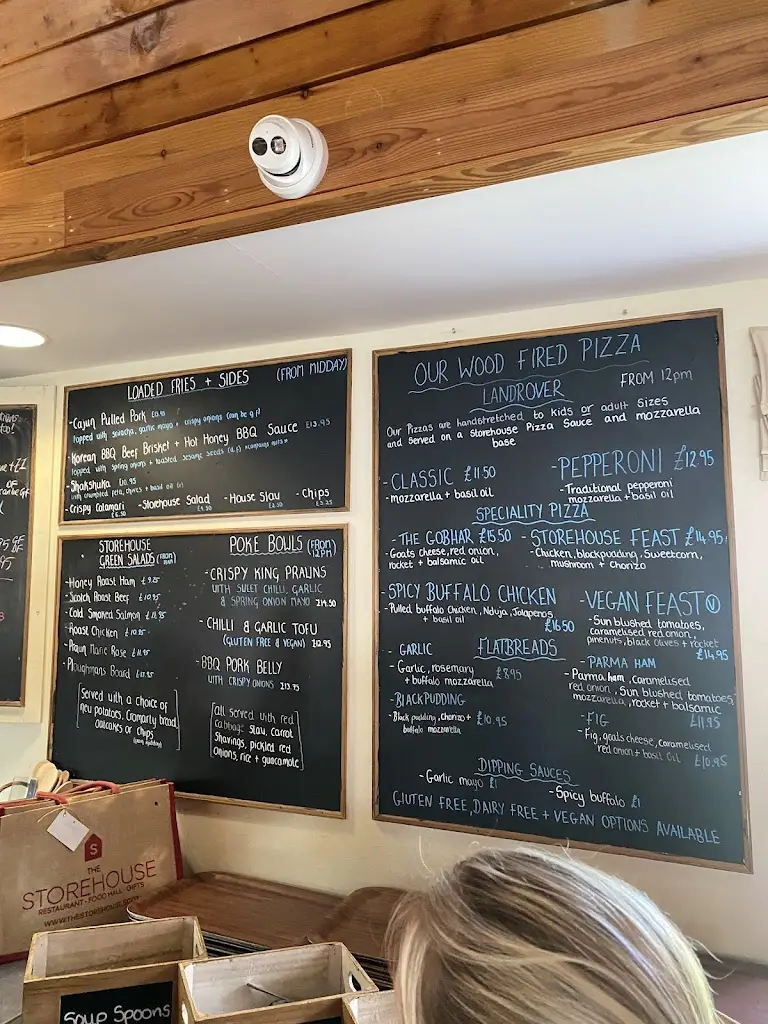 LOADED FRIES + SIDES (FROM MIDDAY)
- Cajun Pulled Pork
topped with sriracha, garlic mayo + crispy onions (can be gf)
- Korean BBQ Beef Brisket + Hot Honey BBQ Sauce £13.95
topped with spring onions + toasted sesame seeds
- Shakshuka
with crumbled feta, chives + basil oil
- Crispy Calamari - Storehouse Salad - House Slaw - Chips
STOREHOUSE
GREEN SALADS
- Honey Roast Ham
- Scotch Roast Beef
- Cold Smoked Salmon
- Roast Chicken
- Prawn Marie Rose
- Ploughmans Board
[Served with a choice of
new potatoes, Cromarty bread,
oatcakes or chips]
POKE BOWLS (FROM 12PM)
- CRISPY KING PRAWNS
WITH SWEET CHILLI, GARLIC
& SPRING ONION MAYO £14.50
- CHILLI & GARLIC TOFU
(GLUTEN FREE & VEGAN) £12.95
- BBQ PORK BELLY
WITH CRISPY ONIONS £13.95
[all served with red
cabbage slaw, carrot
shavings, pickled red
onions, rice + guacamole]
OUR WOOD FIRED PIZZA
LANDROVER FROM 12pm
Our Pizzas are handstretched to kids or adult sizes
and served on a Storehouse Pizza Sauce and mozzarella
base
- CLASSIC £11.50
- mozzarella + basil oil
- PEPPERONI £12.95
- Traditional pepperoni
mozzarella + basil oil
SPECIALITY PIZZA
- THE GOBHAR £15.50
- Goats cheese, red onion,
rocket + balsamic oil
- STOREHOUSE FEAST £14.95
- Chicken, blackpudding, Sweetcorn,
mushroom + chorizo
- SPICY BUFFALO CHICKEN
- Pulled buffalo chicken, Nduja, Jalapenos
+ basil oil £16.50
- VEGAN FEAST V
- Sun blushed tomatoes,
caramelised red onion,
pinenuts, black olives + rocket
£14.95
FLATBREADS
- GARLIC
- Garlic, rosemary £8.95
+ buffalo mozzarella
- PARMA HAM
- Parma ham, caramelised
red onion, Sun blushed tomatoes
mozzarella, rocket + balsamic
£11.95
- BLACKPUDDING
- Black pudding, chorizo + £10.95
buffalo mozzarella
- FIG
- Fig, goats cheese, caramelised
red onion + basil oil £10.95
DIPPING SAUCES
- Garlic mayo £1 - Spicy buffalo £1
GLUTEN FREE, DAIRY FREE + VEGAN OPTIONS AVAILABLE
S
THE
STOREHOUSE
RESTAURANT · FOOD HALL · GIFTS
Soup Spoons